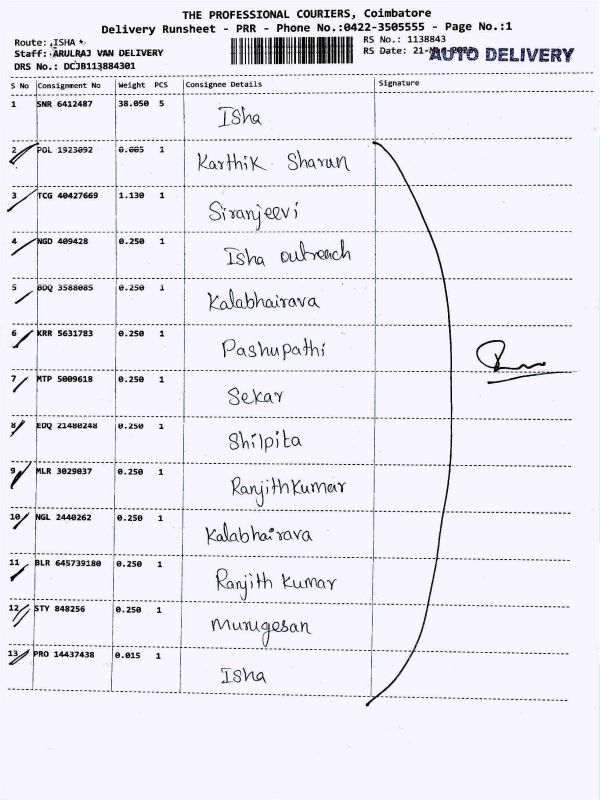 THE PROFESSIONAL COURIERS, Coimbatore
Delivery Runsheet - PRR - Phone No.:0422-3505555 - Page No.:1
Route: ISHA
RS No.: 1138843
Staff: ARULRAJ VAN DELIVERY
RS Date: 21-
AUTO DELIVERY
DRS No.: DCJB113884301
S No Consignment No Weight PCS Consignee Details Signature
1 SNR 6412487 38.050 5 Isha
2 POL 1923092 0.005 1 Karthik Sharun
3 TCG 40427669 1.130 1 Siranjeevi
4 NGD 409428 0.250 1 Isha outreach
5 BDQ 3588085 0.250 1 Kalabhairava
6 KRR 5631783 0.250 1 Pashupathi
7 MTP 5009618 0.250 1 Sekar
8 EDQ 21480248 0.250 1 Shilpita
9 MLR 3029037 0.250 1 Ranjithkumar
10 NGL 2440262 0.250 1 Kalabhairava
11 BLR 645739180 0.250 1 Ranjith Kumar
12 STY 848256 0.250 1 Murugesan
13 PRO 14437438 0.015 1 Isha